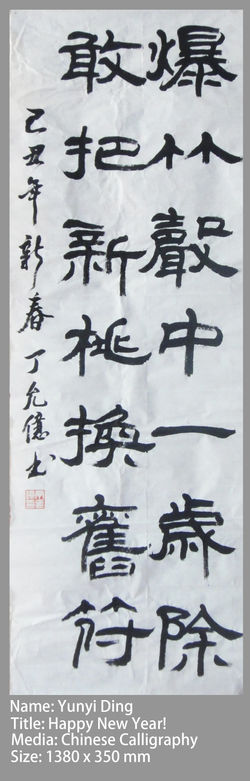 爆竹聲中一歲除
敢把新桃換舊符
己丑年新春丁允億书
Name: Yunyi Ding
Title: Happy New Year!
Media: Chinese Calligraphy
Size: 1380 x 350 mm